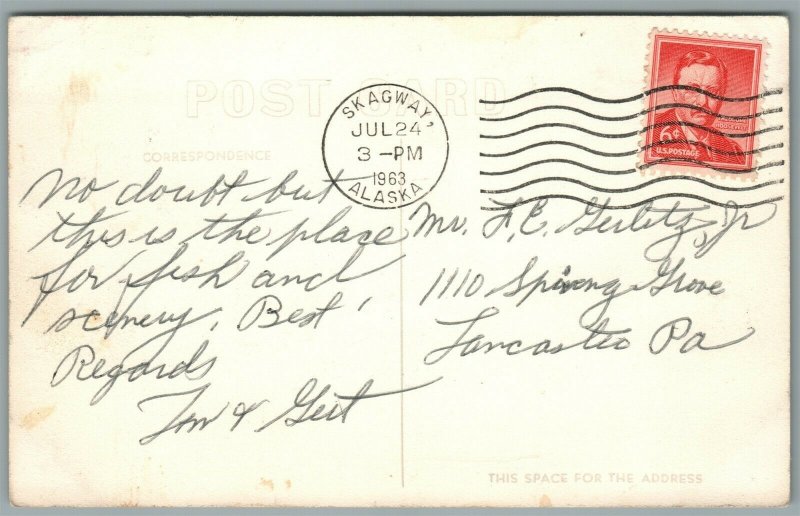 POST CARD
CORRESPONDENCE
SKAGWAY,
JUL 24
3 -PM
1963
ALASKA
6¢
U.S. POSTAGE
No doubt but
this is the place
for fish and
scenery. Best
Regards
& Gert
Mr. F. E. Gerlitz, Jr
1110 Spring Grove
Lancaster Pa
THIS SPACE FOR THE ADDRESS